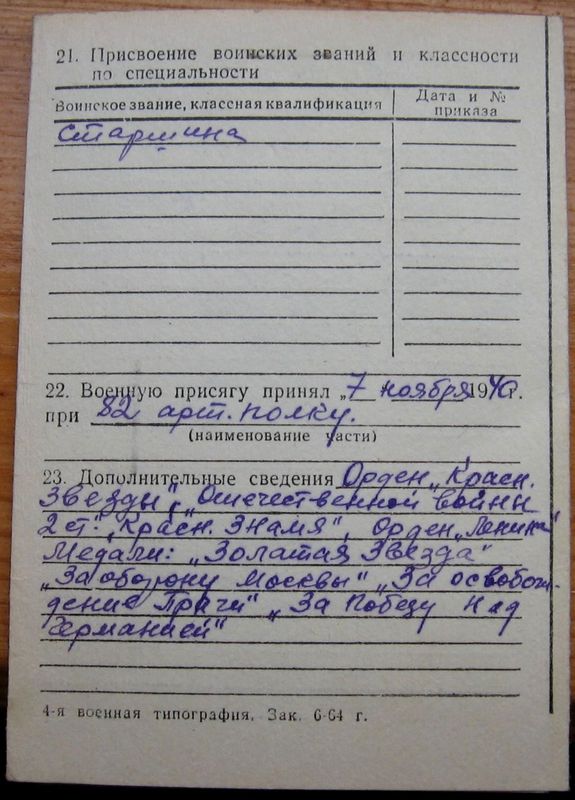 21. Присвоение воинских званий и классности
по специальности
Воинское звание, классная квалификация
Дата и №
приказа
старшина
22. Военную присягу принял „7 ноября 1940г.
при 82 арт. полку.
(наименование части)
23. Дополнительные сведения Орден „Красн.
Звезды", „Отечественной войны
2 ст." „Красн. Знамя", Орден „Ленина"
Медали: „Золотая Звезда"
„За оборону Москвы" „За освобож-
дение Праги" „За Победу над
Германией"
4-я военная типография. Зак. 6-64 г.